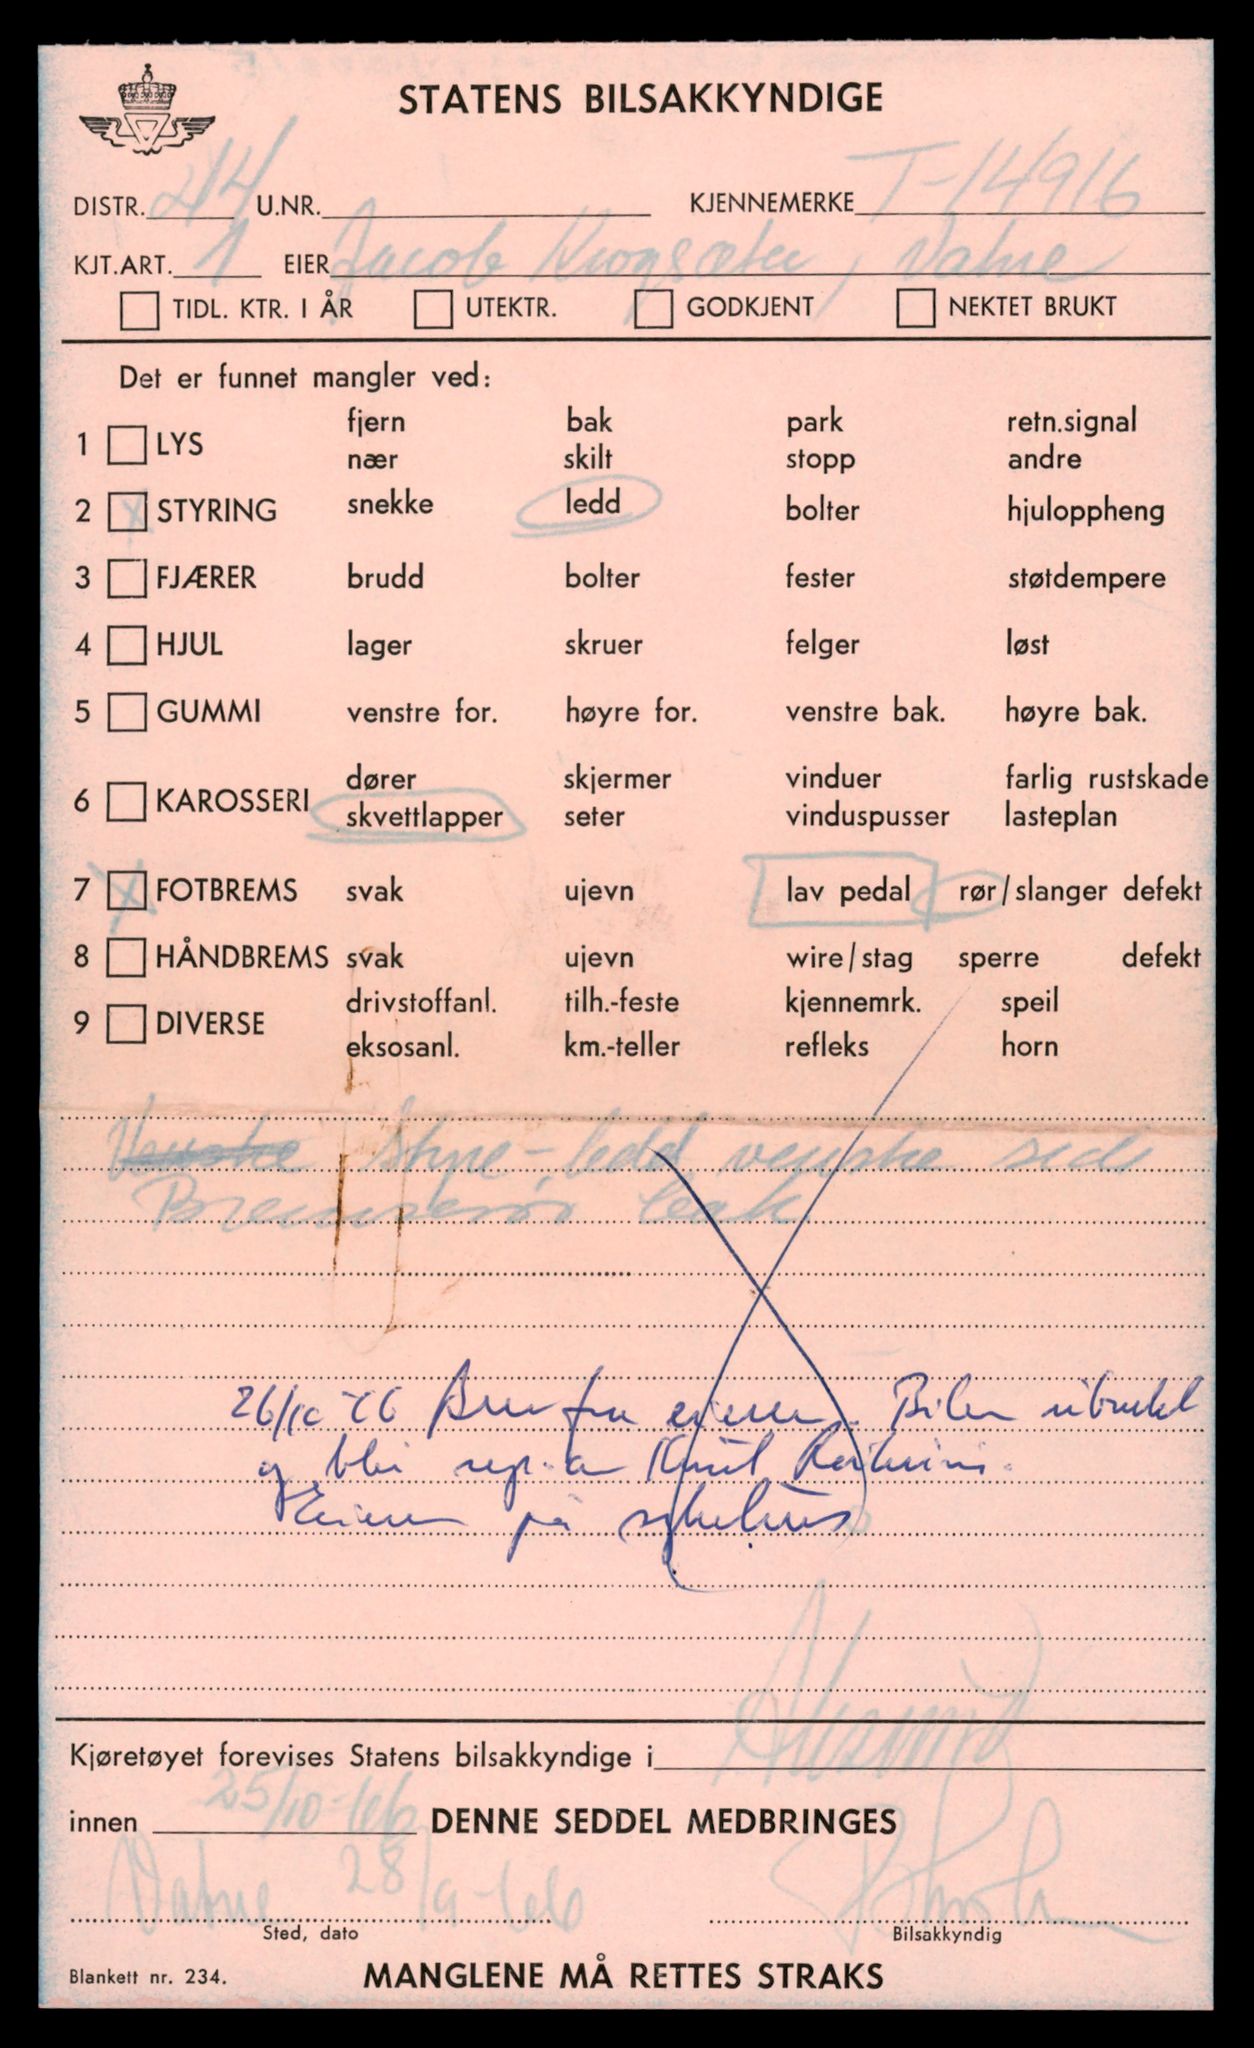 STATENS BILSAKKYNDIGE
DISTR. 244 U.NR. KJENNEMERKE T-14916
KJT.ART. 1 EIER Jacob Krogsæter, Vatne
TIDL. KTR. I ÅR UTEKTR. GODKJENT NEKTET BRUKT
Det er funnet mangler ved:
fjern bak park retn.signal
1 LYS
nær skilt stopp andre
2 x STYRING snekke ledd bolter hjuloppheng
3 FJÆRER brudd bolter fester støtdempere
4 HJUL lager skruer felger løst
5 GUMMI venstre for. høyre for. venstre bak. høyre bak.
dører skjermer vinduer farlig rustskade
6 KAROSSERI
skvettlapper seter vinduspusser lasteplan
7 x FOTBREMS svak ujevn lav pedal rør/slanger defekt
8 HÅNDBREMS svak ujevn wire/stag sperre defekt
drivstoffanl. tilh.-feste kjennemrk. speil
9 DIVERSE
eksosanl. km.-teller refleks horn
Venstre styre-ledd venstre side
Bremserør leak
26/10-66 Brev fra eieren. Bilen ubrukt
og blir rep. av Knut
Eieren på sykehus
Kjøretøyet forevises Statens bilsakkyndige i Ålesund
innen 25/10-66 DENNE SEDDEL MEDBRINGES
Vatne 28/9-66
Sted, dato Bilsakkyndig
Blankett nr. 234. MANGLENE MÅ RETTES STRAKS